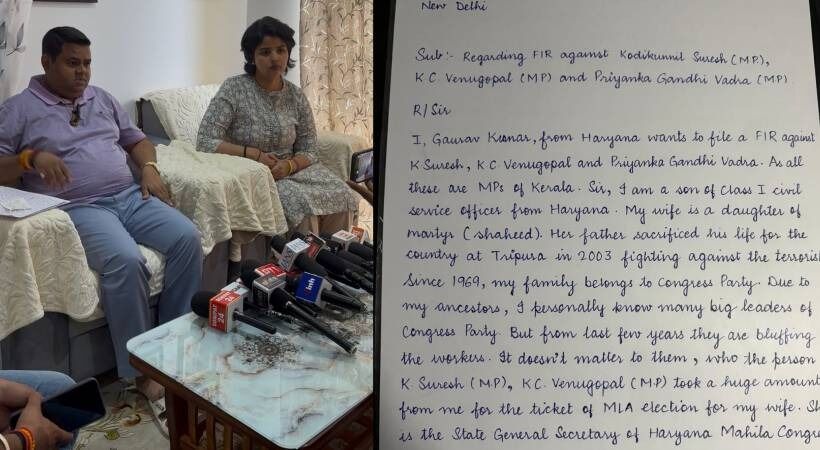 24
New Delhi
Sub:- Regarding FIR against Kodikunnil Suresh (MP),
K.C. Venugopal (MP) and Priyanka Gandhi Vadra (MP)
R/Sir
I, Gaurav Kumar, from Haryana wants to file a FIR against
K.Suresh, K.C. Venugopal and Priyanka Gandhi Vadra. As all
these are MPs of Kerala. Sir, I am a son of Class I civil
service officer from Haryana. My wife is a daughter of
martyr (shaheed). Her father sacrificed his life for the
country at Tripura in 2003 fighting against the terrorist
Since 1969, my family belongs to Congress Party. Due to
my ancestors, I personally know many big leaders of
Congress Party. But from last few years they are bluffing
the workers. It doesn't matter to them, who the person
K. Suresh (M.P), K.C. Venugopal (M.P) took a huge amount
from me for the ticket of MLA election for my wife. Sh
is the State General Secretary of Haryana Mahila Congre